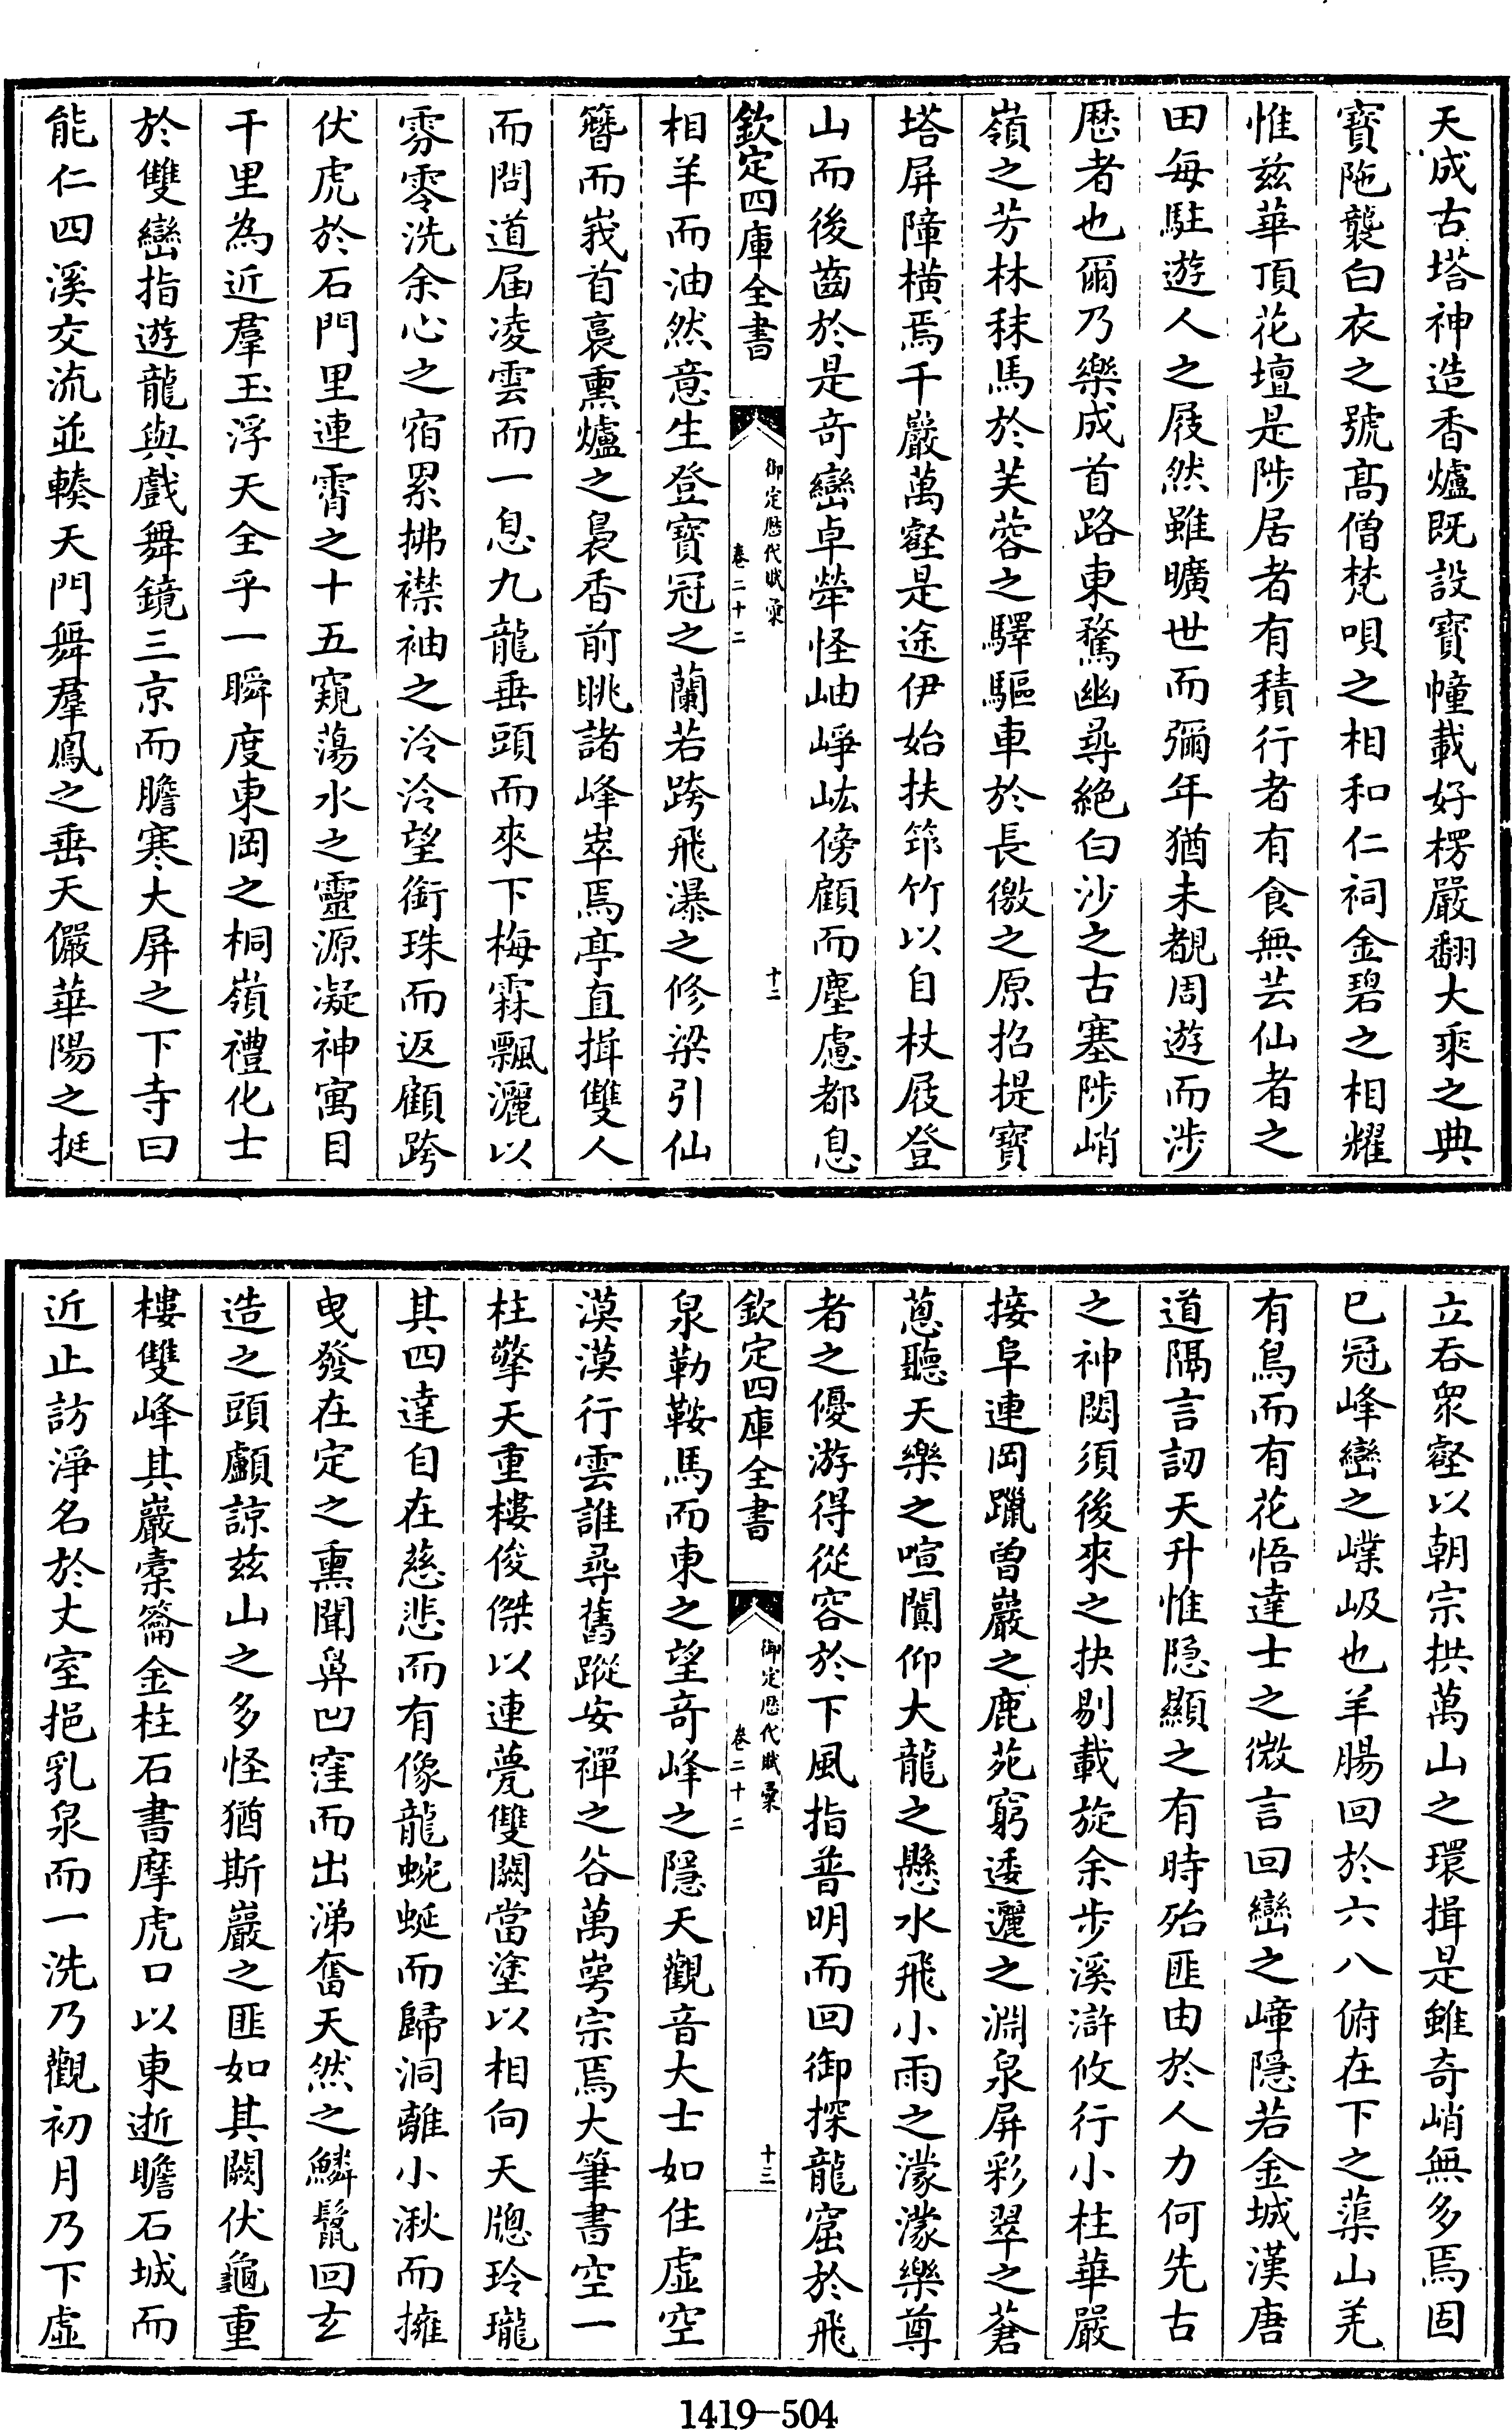 天成古塔神造香爐既設寶幢載好楞嚴翻大乘之典
寶陁襲白衣之號髙僧梵唄之相和仁祠金碧之相耀
惟兹華頂花壇是陟居者有積行者有食無芸仙者之
田每駐遊人之屐然雖曠世而彌年猶未覩周遊而涉
歴者也爾乃樂成首路東騖幽尋絶白沙之古塞陟峭
嶺之芳林秣馬於芙蓉之驛驅車於長徼之原招提寶
塔屏障橫焉千巖萬壑是途伊始扶筇竹以自杖屐登
山而後齒於是奇巒卓犖怪岫崢峵傍顧而塵慮都息
欽定四庫全書
御定歴代賦彚
卷二十二
十二
相羊而油然意生登寶冠之蘭若跨飛瀑之修梁引仙
簪而峩首裛熏爐之裊香前眺諸峰崒焉亭直揖雙人
而問道屆凌雲而一息九龍垂頭而來下梅霖飄灑以
雰零洗余心之宿累拂襟袖之泠泠望銜珠而返顧跨
伏虎於石門里連霄之十五窺蕩水之靈源凝神寓目
千里為近羣玉浮天全乎一瞬度東岡之桐嶺禮化士
於雙巒指遊龍與戲舞鏡三京而膽寒大屏之下寺曰
能仁四溪交流並輳天門舞羣鳳之垂天儼華陽之挺
立吞衆壑以朝宗拱萬山之環揖是雖奇峭無多焉固
已冠峰巒之嶫岋也羊腸回於六八俯在下之蕖山羌
有鳥而有花悟達士之微言回巒之嶂隱若金城漢唐
道隔言訒天升惟隐顯之有時殆匪由於人力何先古
之神閟須後來之抉剔載旋余步溪滸攸行小柱華嚴
接阜連岡躐曽巖之鹿苑窮逶邐之淵泉屏彩翠之蒼
蔥聽天樂之喧闐仰大龍之懸水飛小雨之濛濛樂尊
者之優游得從容於下風指普明而回御探龍窟於飛
欽定四庫全書
御定歴代賦彚
卷二十二
十三
泉勒鞍馬而東之望奇峰之隱天觀音大士如住虛空
漠漠行雲誰尋舊蹤安禪之谷萬崿宗焉大筆書空一
柱擎天重樓俊傑以連甍雙闕當塗以相向天牕玲瓏
其四達自在慈悲而有像龍蜿蜒而歸洞離小湫而擁
曳發在定之熏聞鼻凹窪而出涕奮天然之鱗鬛回玄
造之頭顱諒兹山之多怪猶斯巖之匪如其闕伏龜重
樓雙峰其巖橐籥金柱石書摩虎口以東逝瞻石城而
近止訪淨名於丈室挹乳泉而一洗乃觀初月乃下虛
1419-504